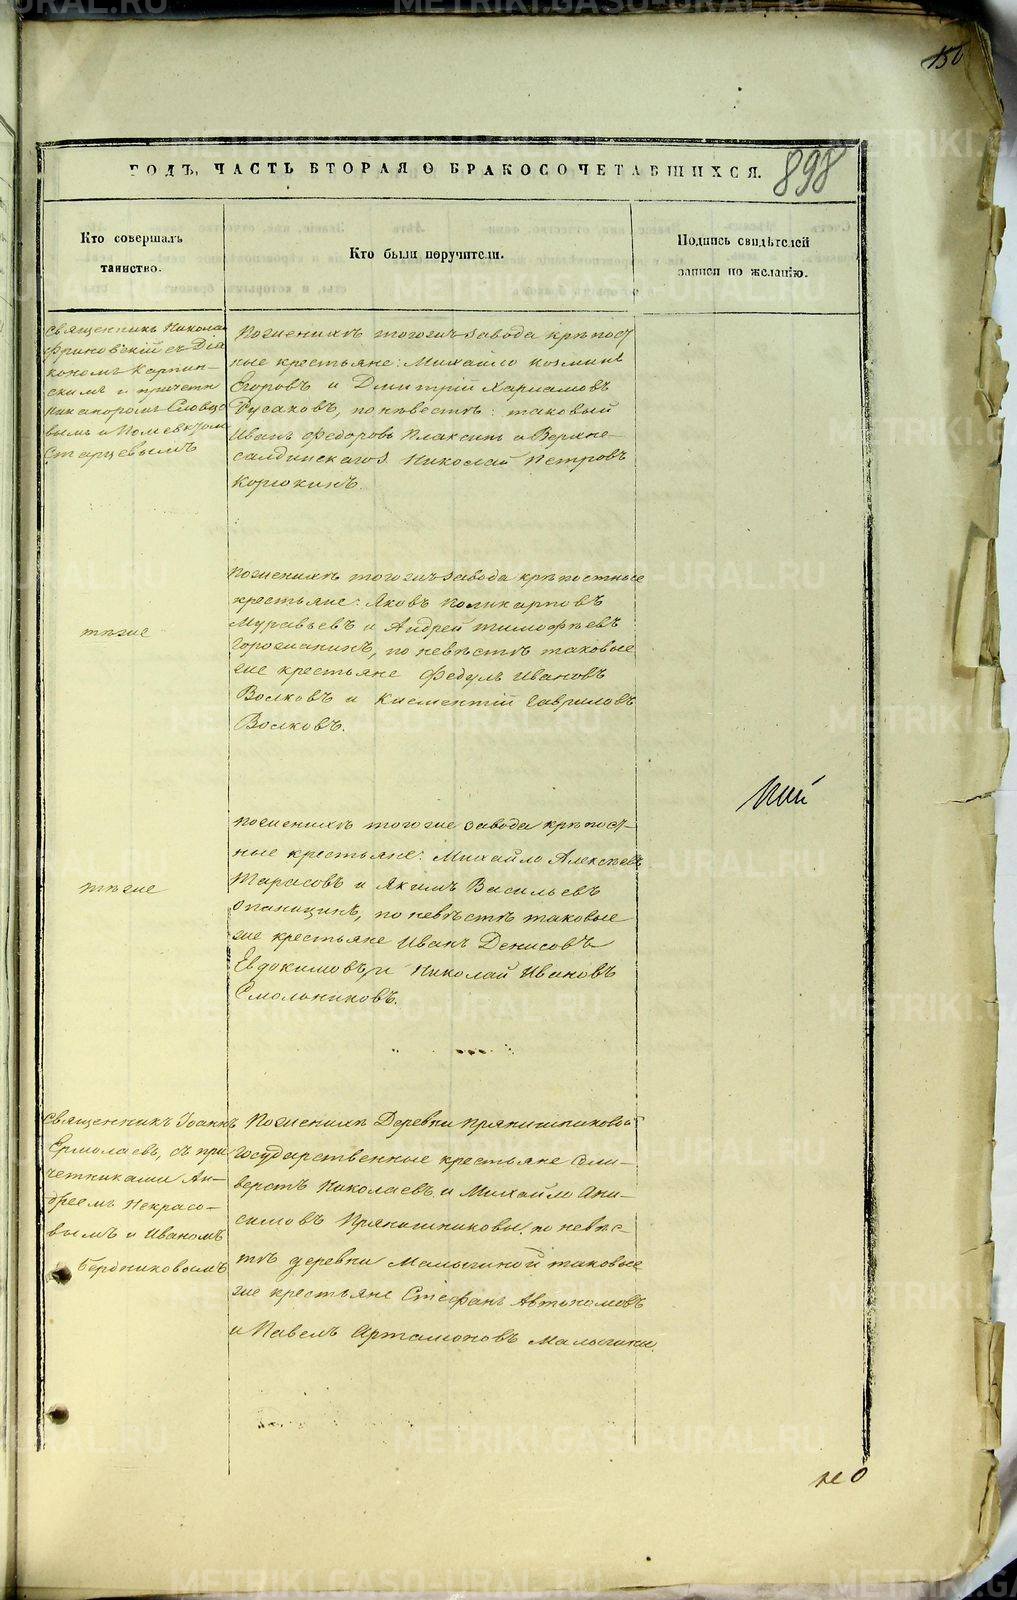 156
ГОДЪ, ЧАСТЬ ВТОРАЯ О БРАКОСОЧЕТАВШИХСЯ.
898
Кто совершалъ
таинство.
Кто были поручители.
Подпись свидѣтелей
записи по желанію.
Священникъ Никола
съ Діа
кономъ Карпин-
скимъ и причетн
Словцо
вымъ и
Старцевымъ
По женихѣ тогожъ завода крѣпост
ные крестьяне: Михайло Козминъ
Егоровъ и Дмитрій Харламовъ
Русаковъ, по невѣстѣ: таковый
Иванъ Федоровъ Плаксинъ и Верхне-
салдинскаго З. Николай Петровъ
Корюкинъ.
По женихѣ тогожъ завода крѣпостные
крестьяне: Яковъ Поликарповъ
Муравьевъ и Андрей Тимофѣевъ
по невѣстѣ таковые
же крестьяне Федулъ Ивановъ
Волковъ и Климентій Гавриловъ
Волковъ.
тѣже
По женихѣ тогоже завода крѣпост-
ные крестьяне: Михайло Алексѣевъ
Тарасовъ и Якимъ Васильевъ
Опаницинъ, по невѣстѣ таковые
же крестьяне Иванъ Денисовъ
Евдокимовъ, и Николай Ивановъ
Смольниковъ.
тѣже
Священникъ Іоаннъ
Ермолаевъ, съ при
четниками Ан-
дреемъ Некрасо-
вымъ и Иваномъ
Бердниковымъ
По женихѣ Деревни Прянишниковой
государственные крестьяне Сели-
верстъ Николаевъ и Михайло Ани-
симовъ Прянишниковы, по невѣс-
тѣ деревни Малыгиной таковые
же крестьяне Стефанъ Автономовъ
и Павелъ Артамоновъ Малыгины.